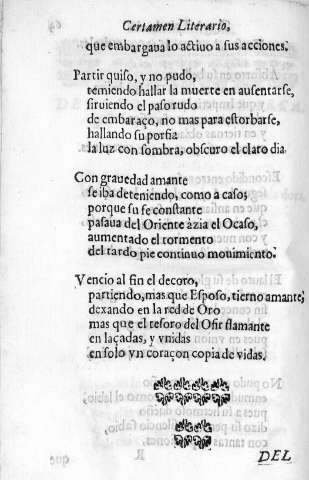 Certamen Literario,
que embargaua lo actiuo a sus acciones.
Partir quiso, y no pudo,
temiendo hallar la muerte en ausentarse,
siruiendo el paso rudo
de embaraço, no mas para estorbarse,
hallando su porfia
la luz con sombra, obscuro el claro dia.
Con grauedad amante
se iba deteniendo, como a caso;
porque su fe constante
pasaua del Oriente àzia el Ocaso,
aumentado el tormento
del tardo pie continuo mouimiento.
Vencio al fin el decoro,
partiendo, mas que Esposo, tierno amante;
dexando en la red de Oro
mas que el tesoro del Ofir flamante
en laçadas, y vnidas
en solo vn coraçon copia de vidas.
DEL